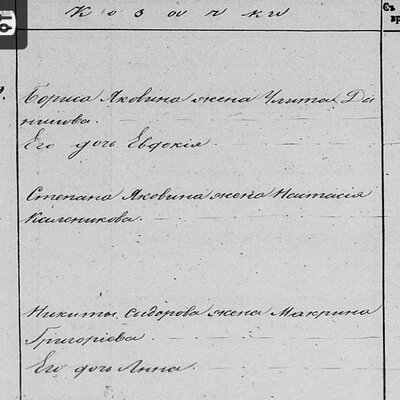 Козачки
Съ
вр
Бориса Яковина жена Улита Да
нилова.
Его дочь Евдокія.
Степана Яковина жена Настасія
Каленикова.
Никиты Сидорова жена Макрина
Григоріева.
Его дочь Анна.